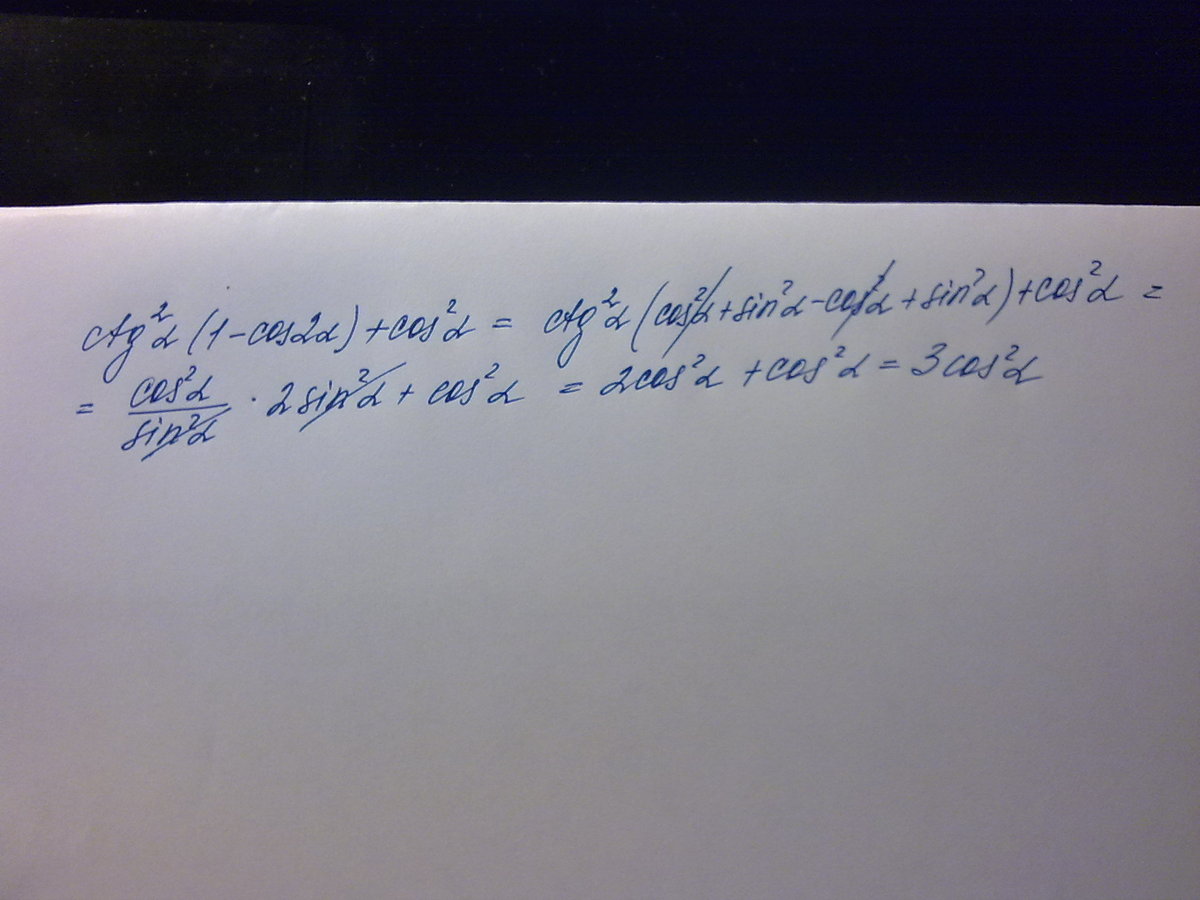 ctg²α (1-cos2α)+cos²α = ctg²α (cos²α+sin²α-cos²α+sin²α)+cos²α =
= cos²α/sin²α · 2sin²α + cos²α = 2cos²α + cos²α = 3cos²α